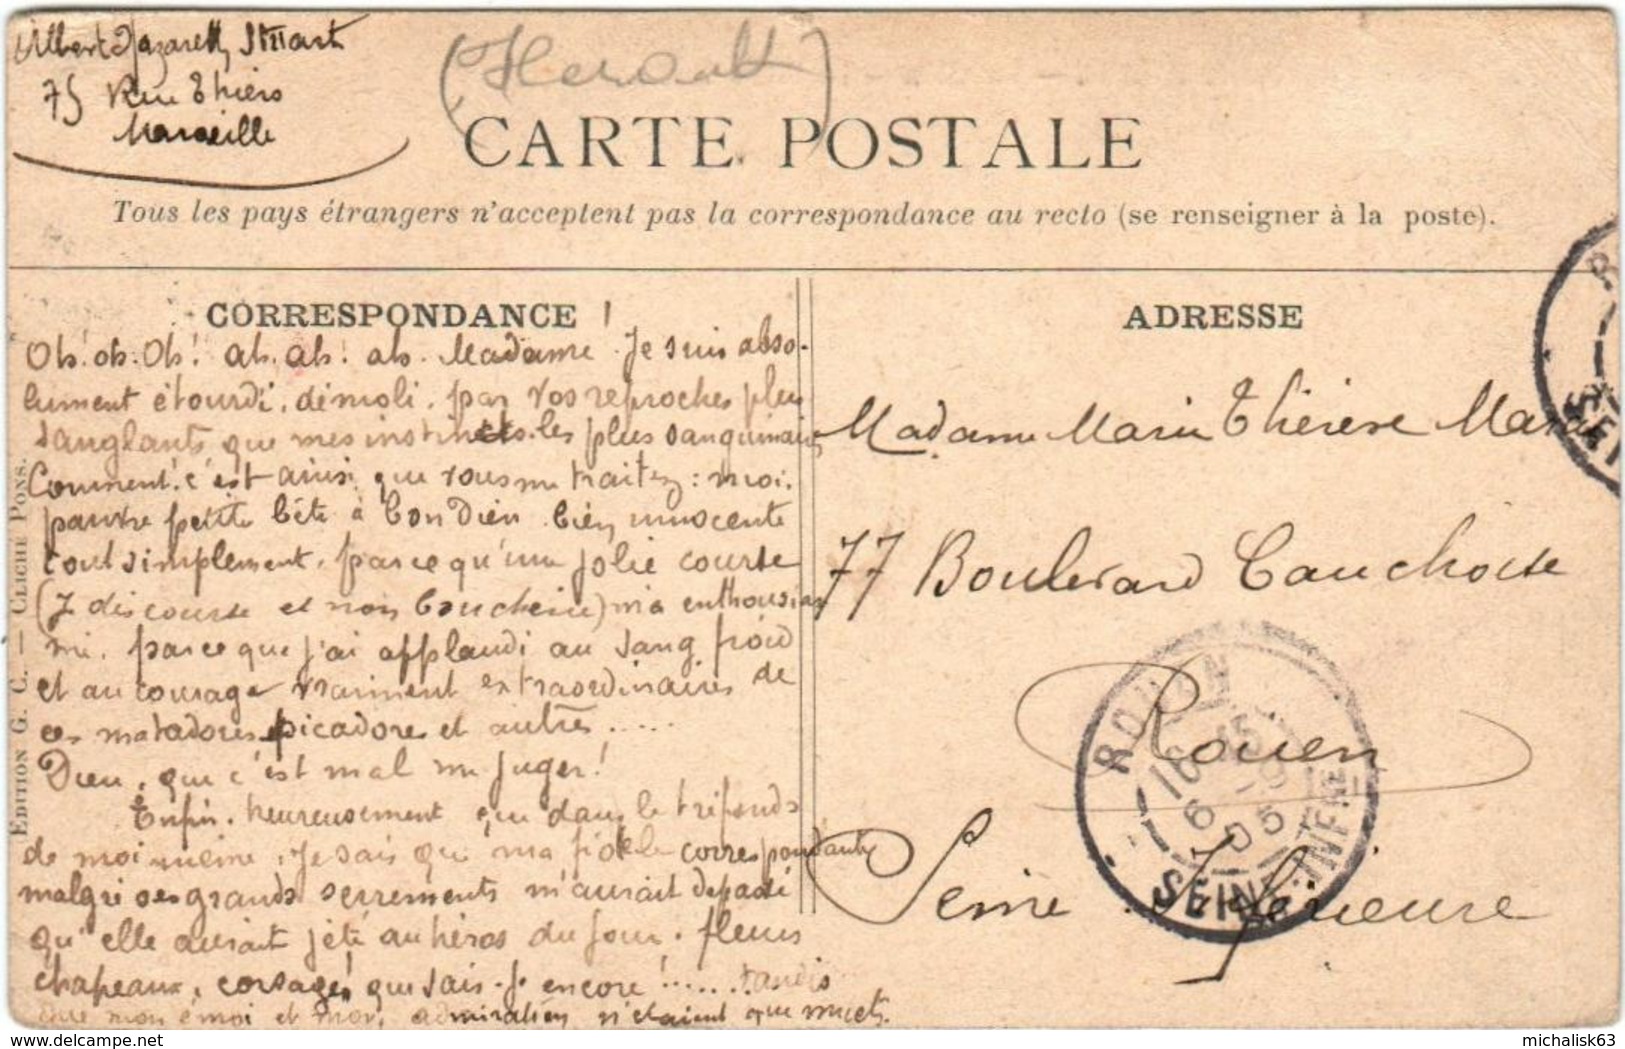 Albert Nazareth Stuart
75 Rue Thiers
Marseille
(Herault)
CARTE POSTALE
Tous les pays étrangers n'acceptent pas la correspondance au recto (se renseigner à la poste).
CORRESPONDANCE !
Oh! oh. Oh! ah. ah! ah. Madame. Je suis abso-
lument étourdi, démoli, par vos reproches plus
sanglants, que mes instincts les plus sanguinaires
Comment! c'est ainsi que vous me traitez : moi.
pauvre petite bête à bon Dieu bien innocente
tout simplement, parce qu'une jolie course
(je dis course et non boucherie) m'a enthousias
mé. parce que j'ai applaudi au sang froid
et au courage vraiment extraordinaires de
ces matadores picadores et autres.....
Dieu, que c'est mal me juger!
Enfin. heureusement que dans le tréfonds
de moi même, je sais que ma fidèle correspondante
malgré ses grands serrements m'aurait dépassé
qu'elle aurait jeté au héros du jour. fleurs
chapeaux, corsage! que sais-je encore!...... tandis
que mon émoi et mon admiration n'étaient que muets.
EDITION G. C. — CLICHÉ PONS.
ADRESSE
Madame Marie Thérèse
77 Boulevard Cauchoise
Rouen
Seine Inférieure
ROUEN
16 15
6 - 9
05
SEINE-INFRE
R
SEI
michalisk63